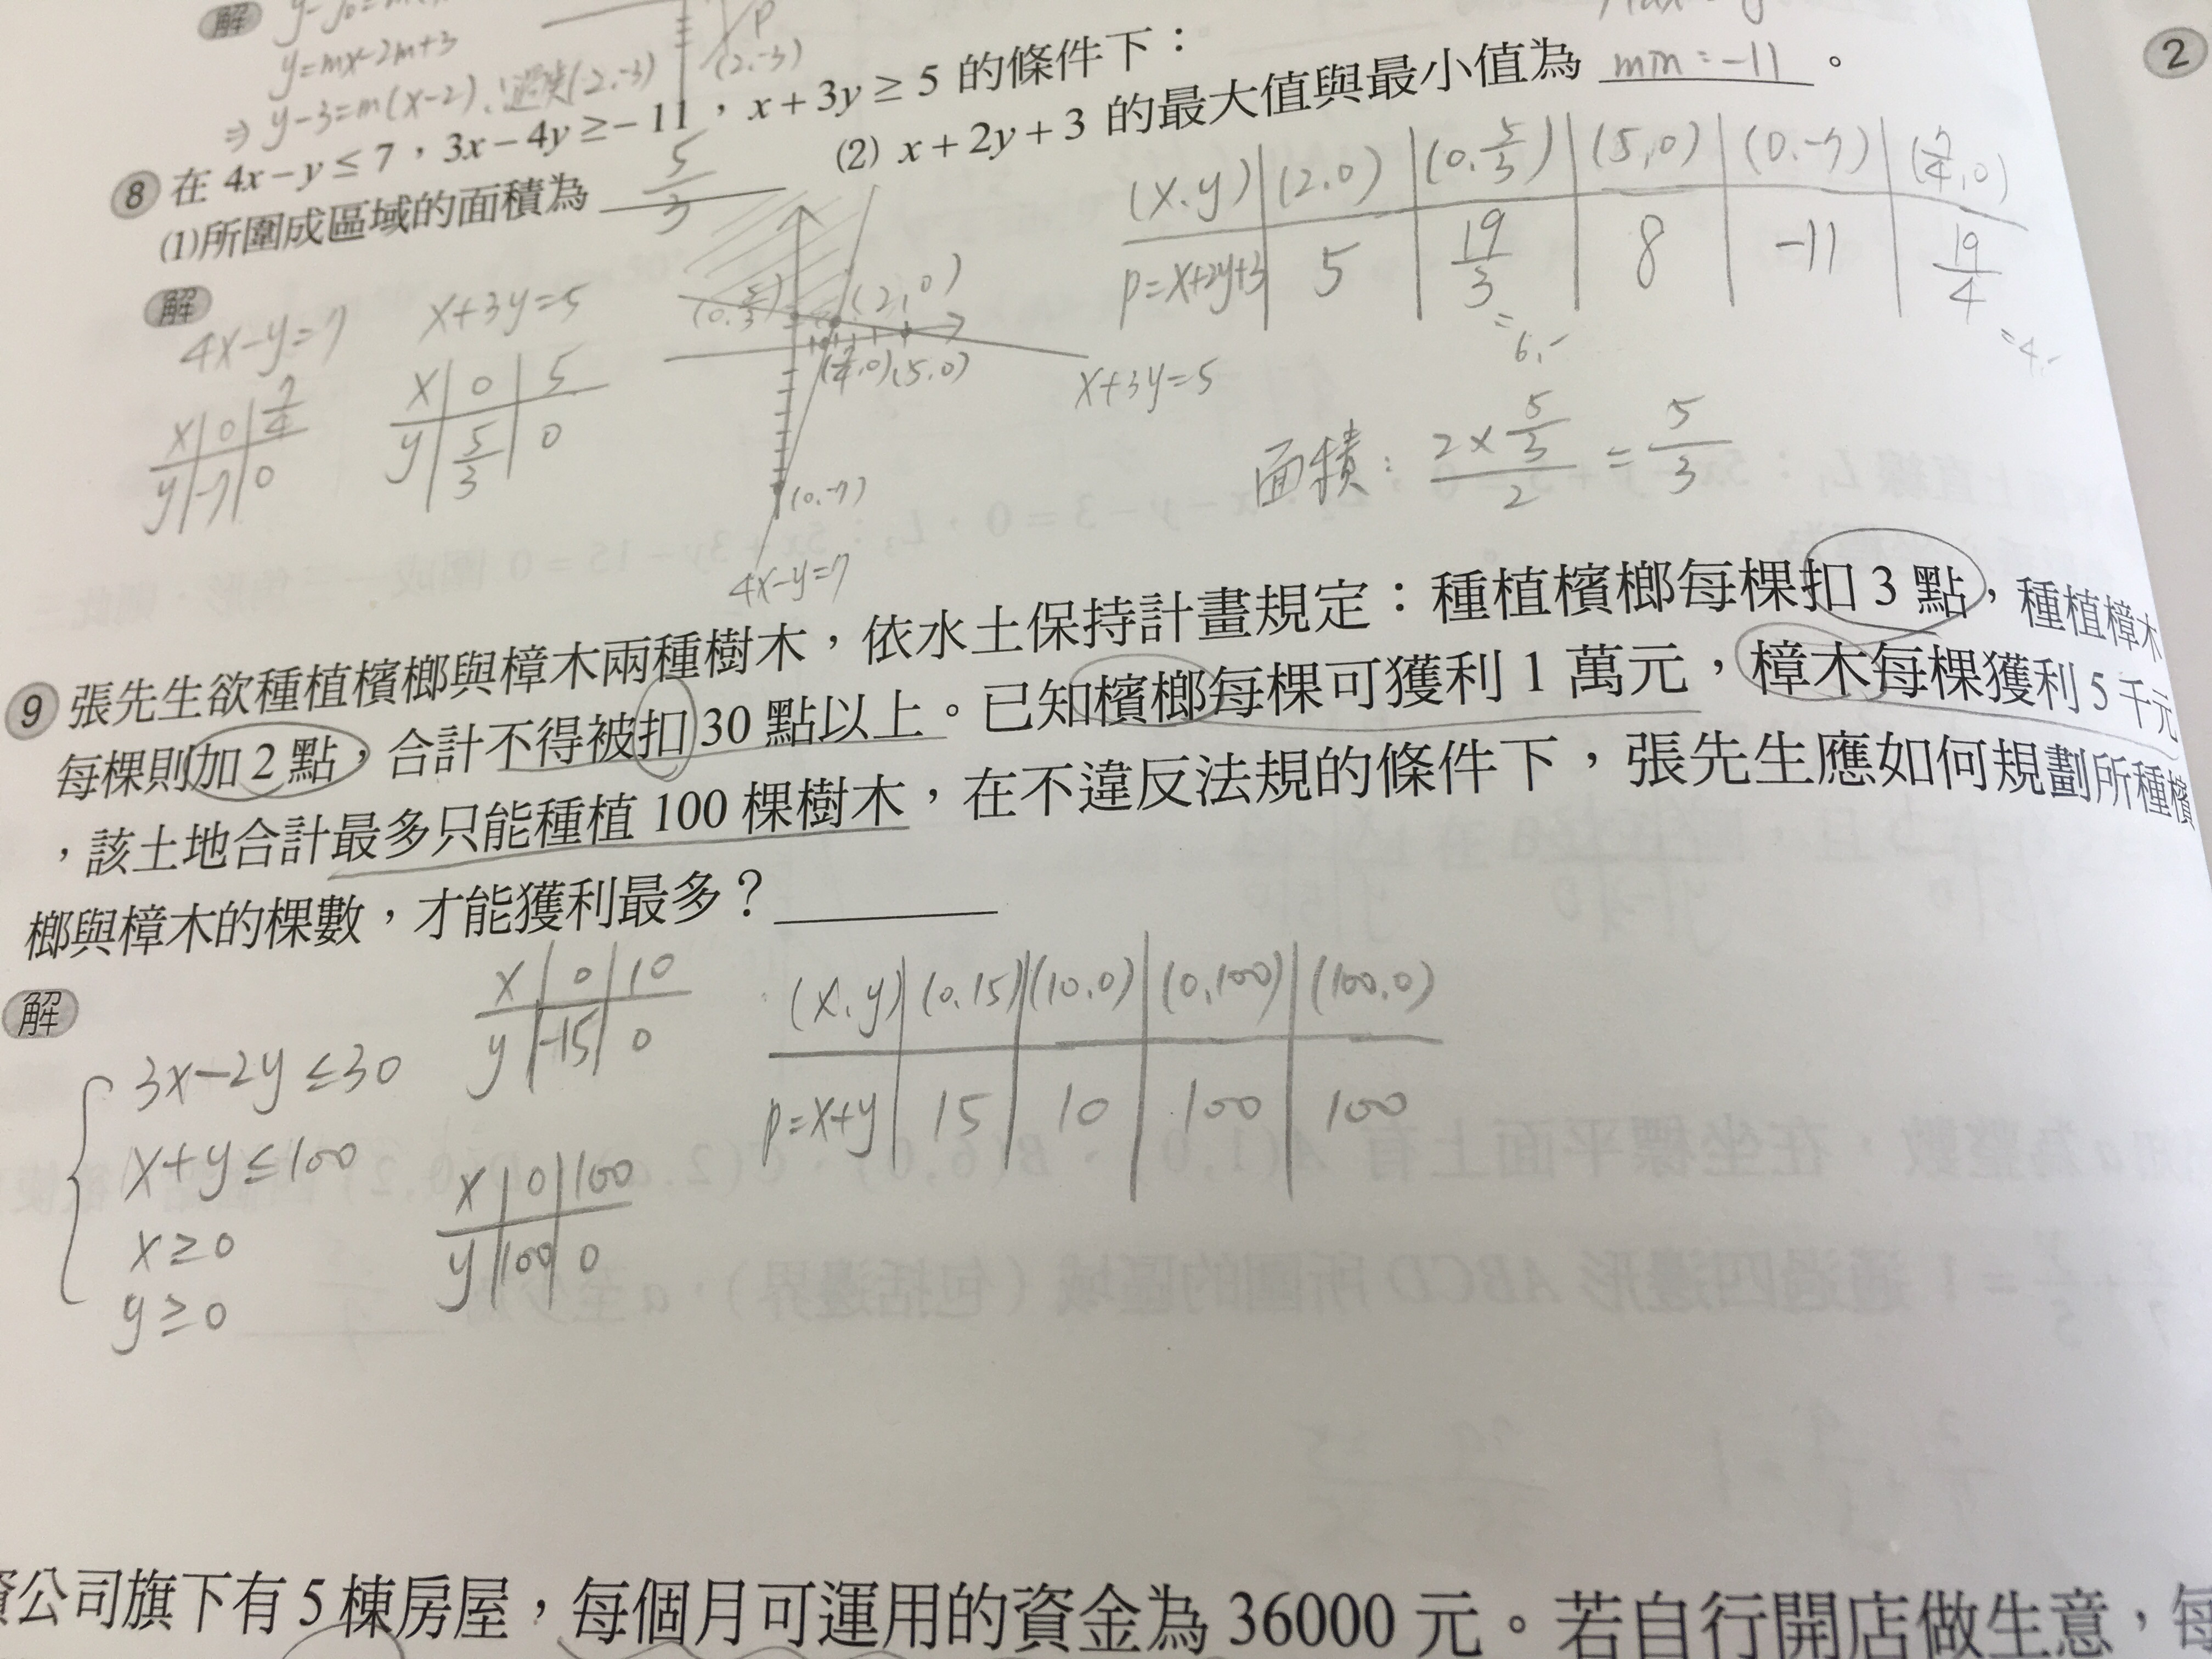 解
y=mx-2m+3
⇒ y-3=m(x-2)
(2,-3)
②
⑧ 在 4x-y≤7,3x-4y≥-11,x+3y≥5 的條件下:
(1)所圍成區域的面積為 5/3
(2) x+2y+3 的最大值與最小值為 min=-11。
解
4x-y=7
x | 0 | 7/4
y | -7 | 0
x+3y=5
x | 0 | 5
y | 5/3 | 0
(0,5/3)
(2,0)
(7/4,0)(5,0)
x+3y=5
(0,-7)
4x-y=7
(x,y) | (2,0) | (0,5/3) | (5,0) | (0,-7) | (7/4,0)
p=x+2y+3 | 5 | 19/3 | 8 | -11 | 19/4
面積: (2×5/3)/2 = 5/3
⑨ 張先生欲種植檳榔與樟木兩種樹木,依水土保持計畫規定:種植檳榔每棵扣 3 點,種植樟木
每棵則加 2 點,合計不得被扣 30 點以上。已知檳榔每棵可獲利 1 萬元,樟木每棵獲利 5 千元
,該土地合計最多只能種植 100 棵樹木,在不違反法規的條件下,張先生應如何規劃所種檳
榔與樟木的棵數,才能獲利最多?
解
3x-2y≤30
x+y≤100
x≥0
y≥0
x | 0 | 10
y | -15 | 0
x | 0 | 100
y | 100 | 0
(x,y) | (0,15) | (10,0) | (0,100) | (100,0)
p=x+y | 15 | 10 | 100 | 100
公司旗下有 5 棟房屋,每個月可運用的資金為 36000 元。若自行開店做生意,每